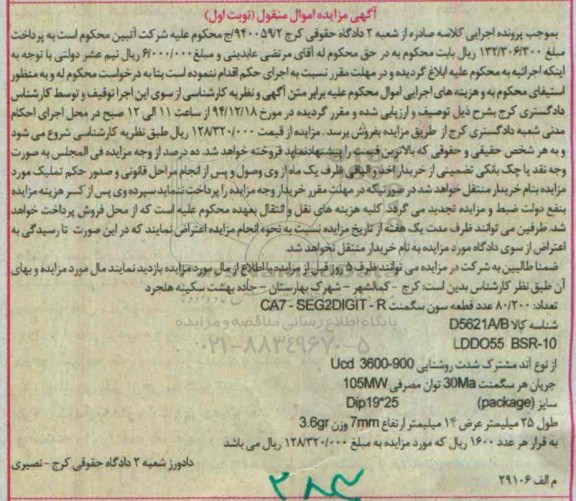 آگهی مزایده اموال منقول (نوبت اول)
بموجب پرونده اجرایی کلاسه صادره از شعبه ۲ دادگاه حقوقی کرج ۹۴۰۰۵۹/۲/ج محکوم علیه شرکت آتبین محکوم است به پرداخت
مبلغ ۱۳۲/۳۰۶/۳۰۰ ریال بابت محکوم به در حق محکوم له آقای مرتضی عابدینی و مبلغ ۶/۰۰۰/۰۰۰ ریال نیم عشر دولتی با توجه به
اینکه اجرائیه به محکوم علیه ابلاغ گردیده و در مهلت مقرر نسبت به اجرای حکم اقدام ننموده است بنا به درخواست محکوم له و به منظور
استیفای محکوم به و هزینه های اجرایی اموال محکوم علیه برابر متن آگهی و نظریه کارشناسی از سوی این اجرا توقیف و توسط کارشناس
دادگستری کرج بشرح ذیل توصیف و ارزیابی شده و مقرر گردیده در مورخ ۹۴/۱۲/۱۸ از ساعت ۱۱ الی ۱۲ صبح در محل اجرای احکام
مدنی شعبه دادگستری کرج از طریق مزایده بفروش برسد. مزایده از قیمت ۱۲۸/۳۲۰/۰۰۰ ریال طبق نظریه کارشناسی شروع می شود
و به هر شخص حقیقی و حقوقی که بالاترین قیمت را پیشنهاد نماید فروخته خواهد شد. ده درصد از وجه مزایده فی المجلس به صورت
وجه نقد یا چک بانکی تضمینی از خریدار اخذ و الباقی ظرف یک ماه از وی وصول و پس از انجام مراحل قانونی و صدور حکم تملیک مورد
مزایده بنام خریدار منتقل خواهد شد در صورتیکه در مهلت مقرر خریدار وجه مزایده را پرداخت ننماید سپرده وی پس از کسر هزینه مزایده
بنفع دولت ضبط و مزایده تجدید می گردد. کلیه هزینه های نقل و انتقال بعهده محکوم علیه است که از محل فروش پرداخت خواهد
شد. طرفین می توانند ظرف مدت یک هفته از تاریخ مزایده نسبت به نحوه انجام مزایده اعتراض نمایند که در این صورت تا رسیدگی به
اعتراض از سوی دادگاه مورد مزایده به نام خریدار منتقل نخواهد شد.
ضمنا طالبین به شرکت در مزایده می توانند ظرف ۵ روز قبل از مزایده با اطلاع از مال مورد مزایده بازدید نمایند مال مورد مزایده و بهای
آن طبق نظر کارشناس بدین است: کرج - کمالشهر - شهرک بهارستان - جاده بهشت سکینه هلجرد
تعداد: ۸۰/۲۰۰ عدد قطعه سون سگمنت CA7 - SEG2DIGIT - R
پایگاه اطلاع رسانی مناقصه و مزایده
شناسه کالا D5621A/B
۰۲۱-۸۸۳۴۹۶۷۰-۵
LDDO55 BSR-10
از نوع آند مشترک شدت روشنایی Ucd 3600-900
جریان هر سگمنت 30Ma توان مصرفی 105MW
سایز (package) Dip19*25
طول ۲۵ میلیمتر عرض ۱۴ میلیمتر ارتفاع 7mm وزن 3.6gr
به قرار هر عدد ۱۶۰۰ ریال که مورد مزایده به مبلغ ۱۲۸/۳۲۰/۰۰۰ ریال می باشد
دادورز شعبه ۲ دادگاه حقوقی کرج - نصیری
م الف ۲۹۱۰۶